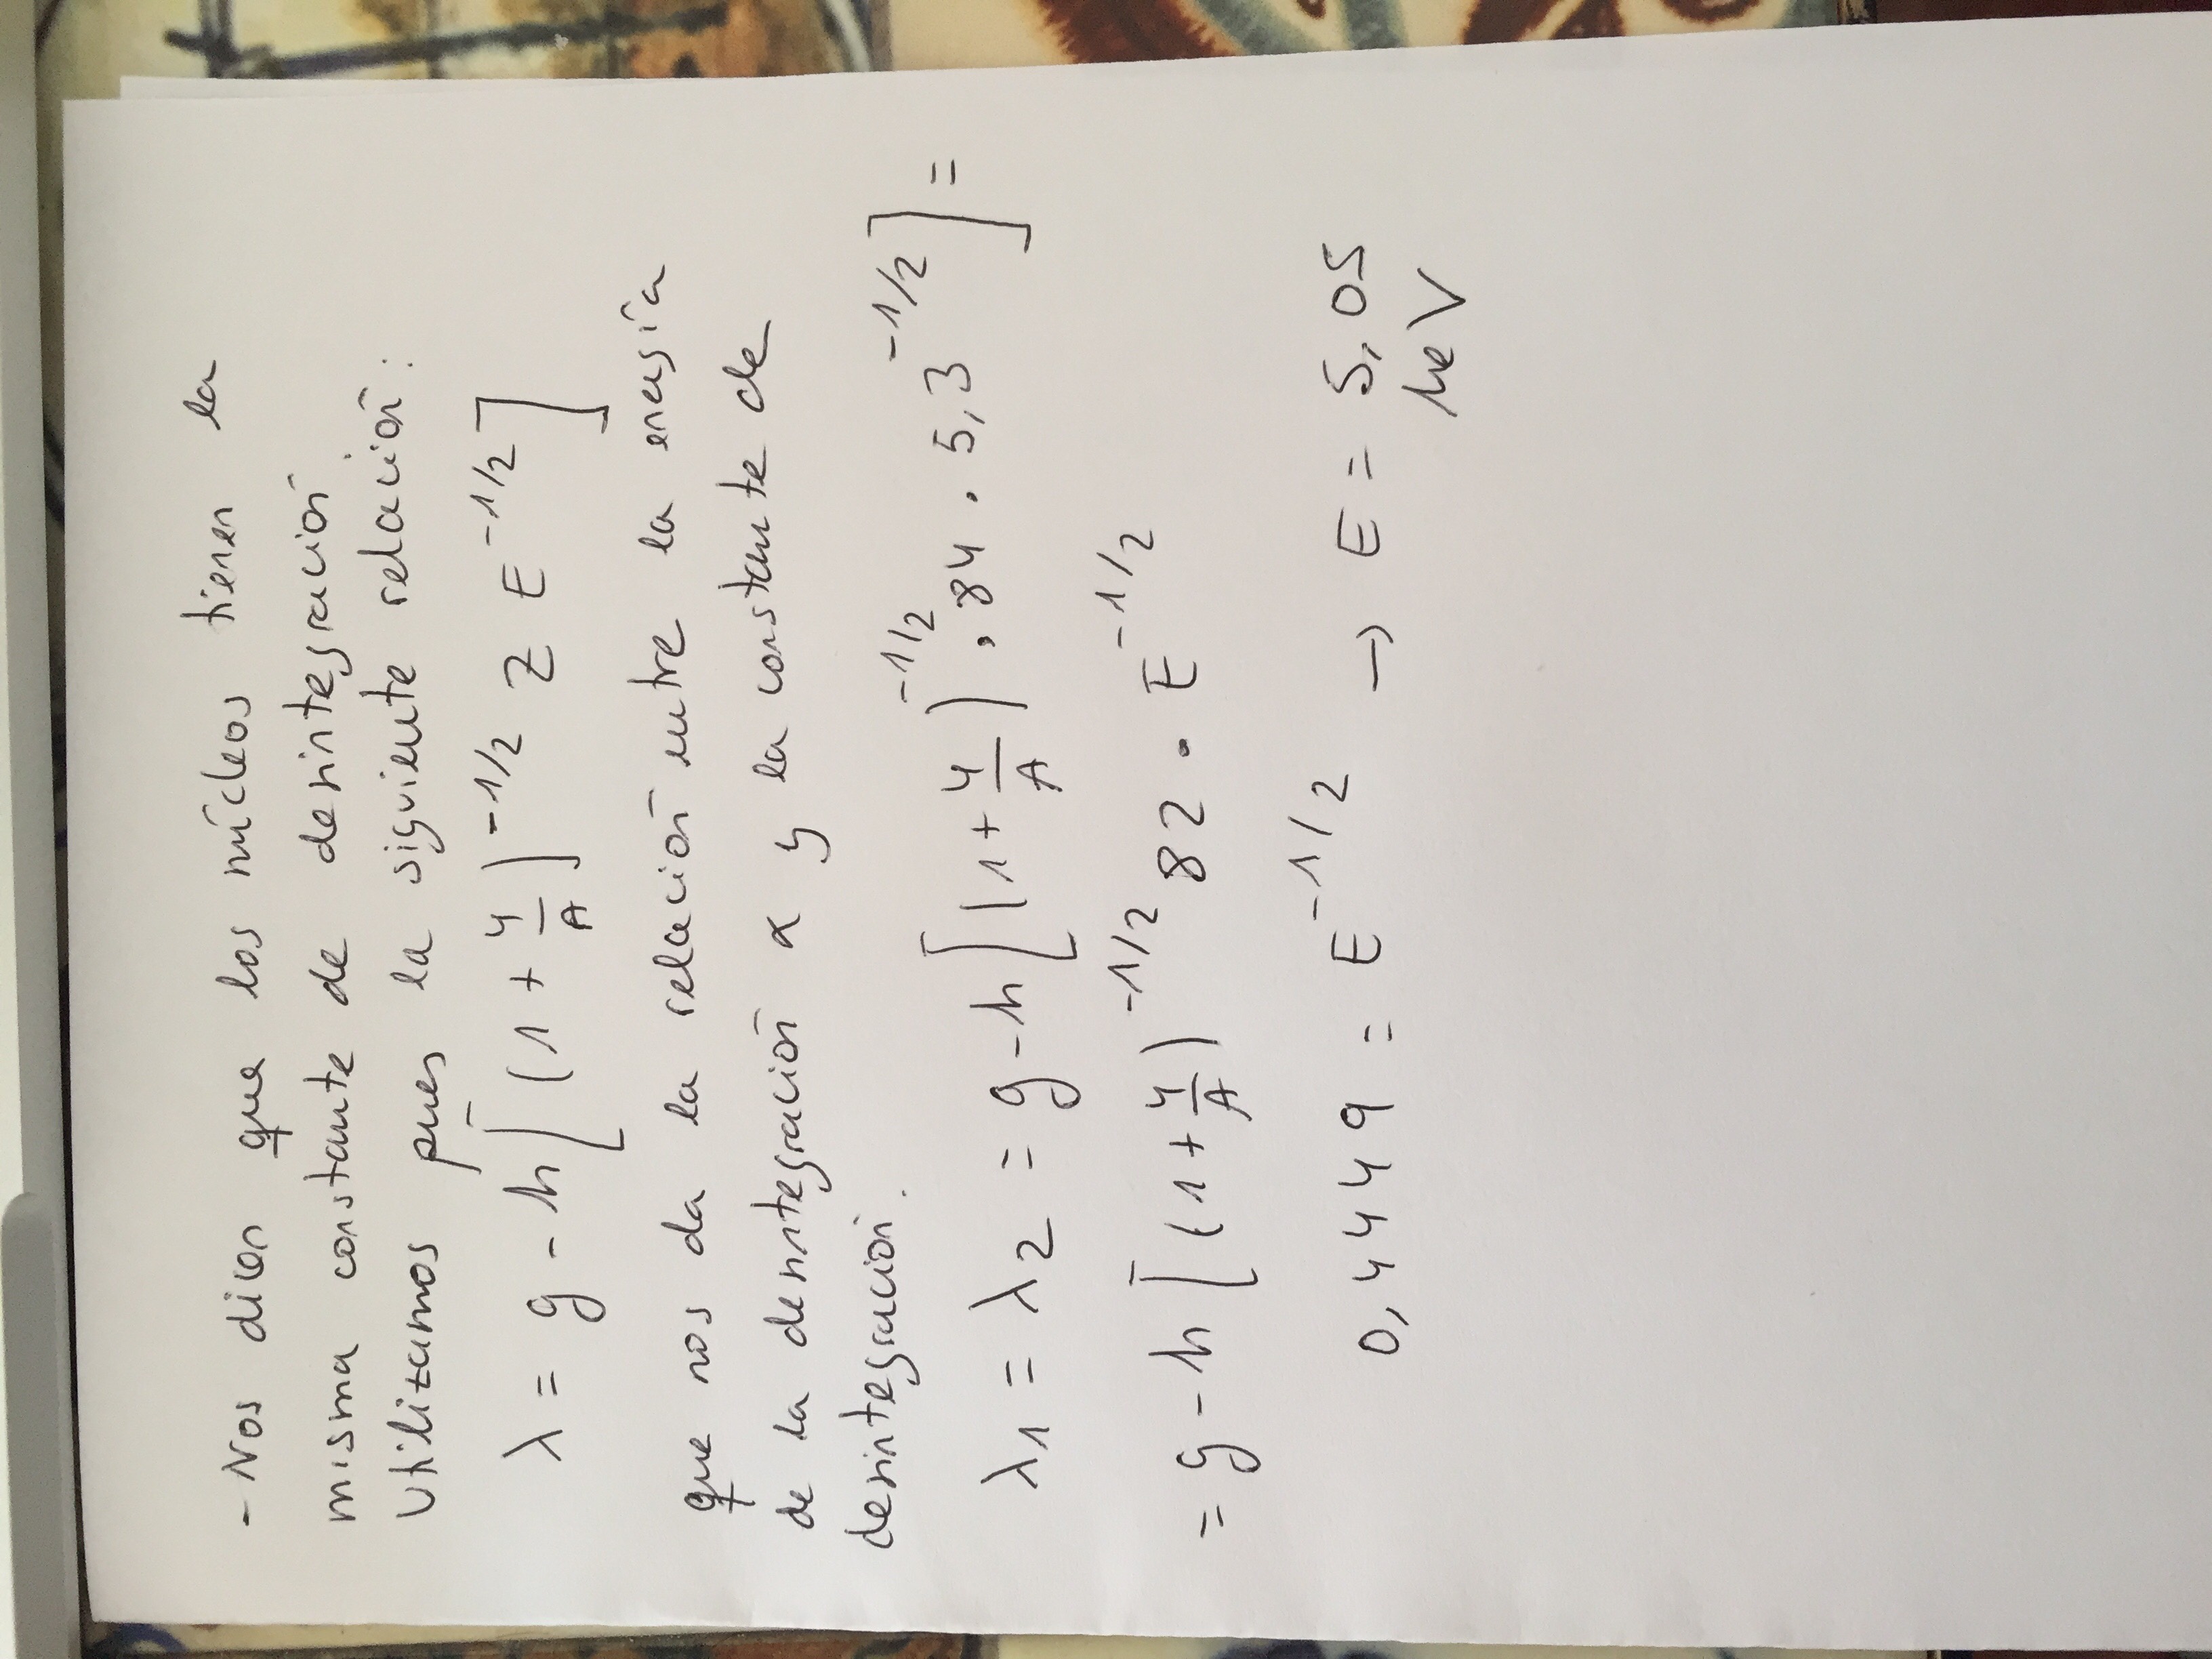 - Nos dicen que los núcleos tienen la
misma constante de desintegración.
Utilizamos pues la siguiente relación:
λ = g - h [(1 + 4/A)^-1/2 Z E^-1/2]
que nos da la relación entre la energía
de la desintegración α y la constante de
desintegración.
λ1 = λ2 = g - h [(1 + 4/A)^-1/2 · 84 · 5,3^-1/2] =
= g - h [(1 + 4/A)^-1/2 82 · E^-1/2
0,4449 = E^-1/2 → E = 5,05
MeV